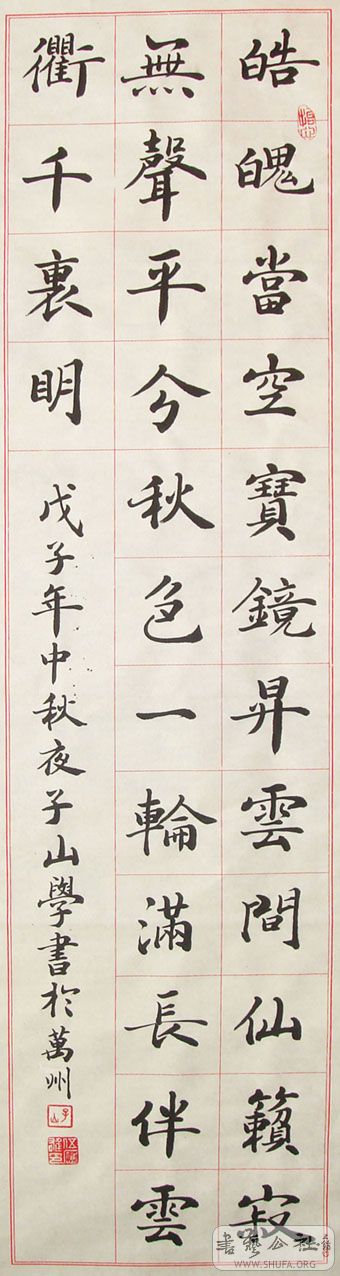 皓魄當空寶鏡昇雲間仙籟寂
無聲平兮秋色一輪滿長伴雲
衢千裏明
戊子年中秋夜子山學書於萬州
子山
書藝公社
WWW.SHUFA.ORG